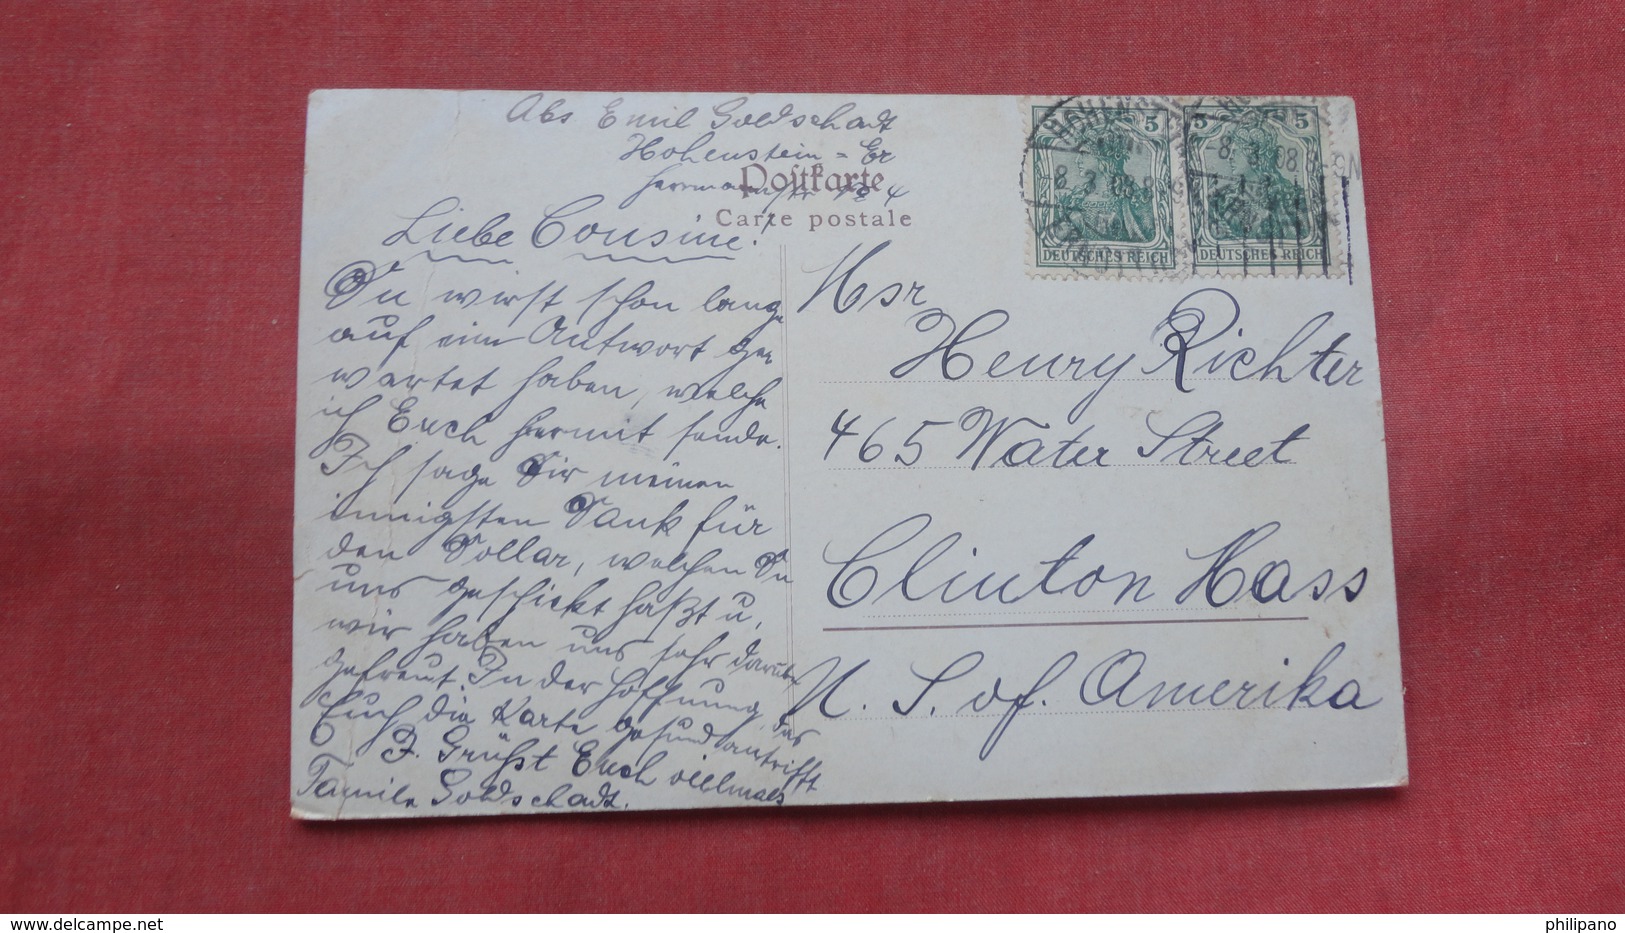 Abs Emil Goldschadt
Hohenstein-Er
Herrmannstr
Postkarte
Carte postale
Liebe Cousine!
Du wirst schon lange
auf ein Antwort ge-
wartet haben, welche
ich Euch hiermit sende.
Ich sage Dir meinen
innigsten Dank für
den Dollar, welchen Du
uns geschickt haßt u.
wir haben uns sehr darüber
gefreut. In der Hoffnung das
Euch die Karte gesund antrifft
Grüßt Euch vielmals
Familie Goldschadt.
5 5
8.3.08.8-9N
DEUTSCHES REICH DEUTSCHES REICH
Msr
Henry Richter
465 Water Street
Clinton Mass
U. S. of. Amerika
delcampe.net
philipano